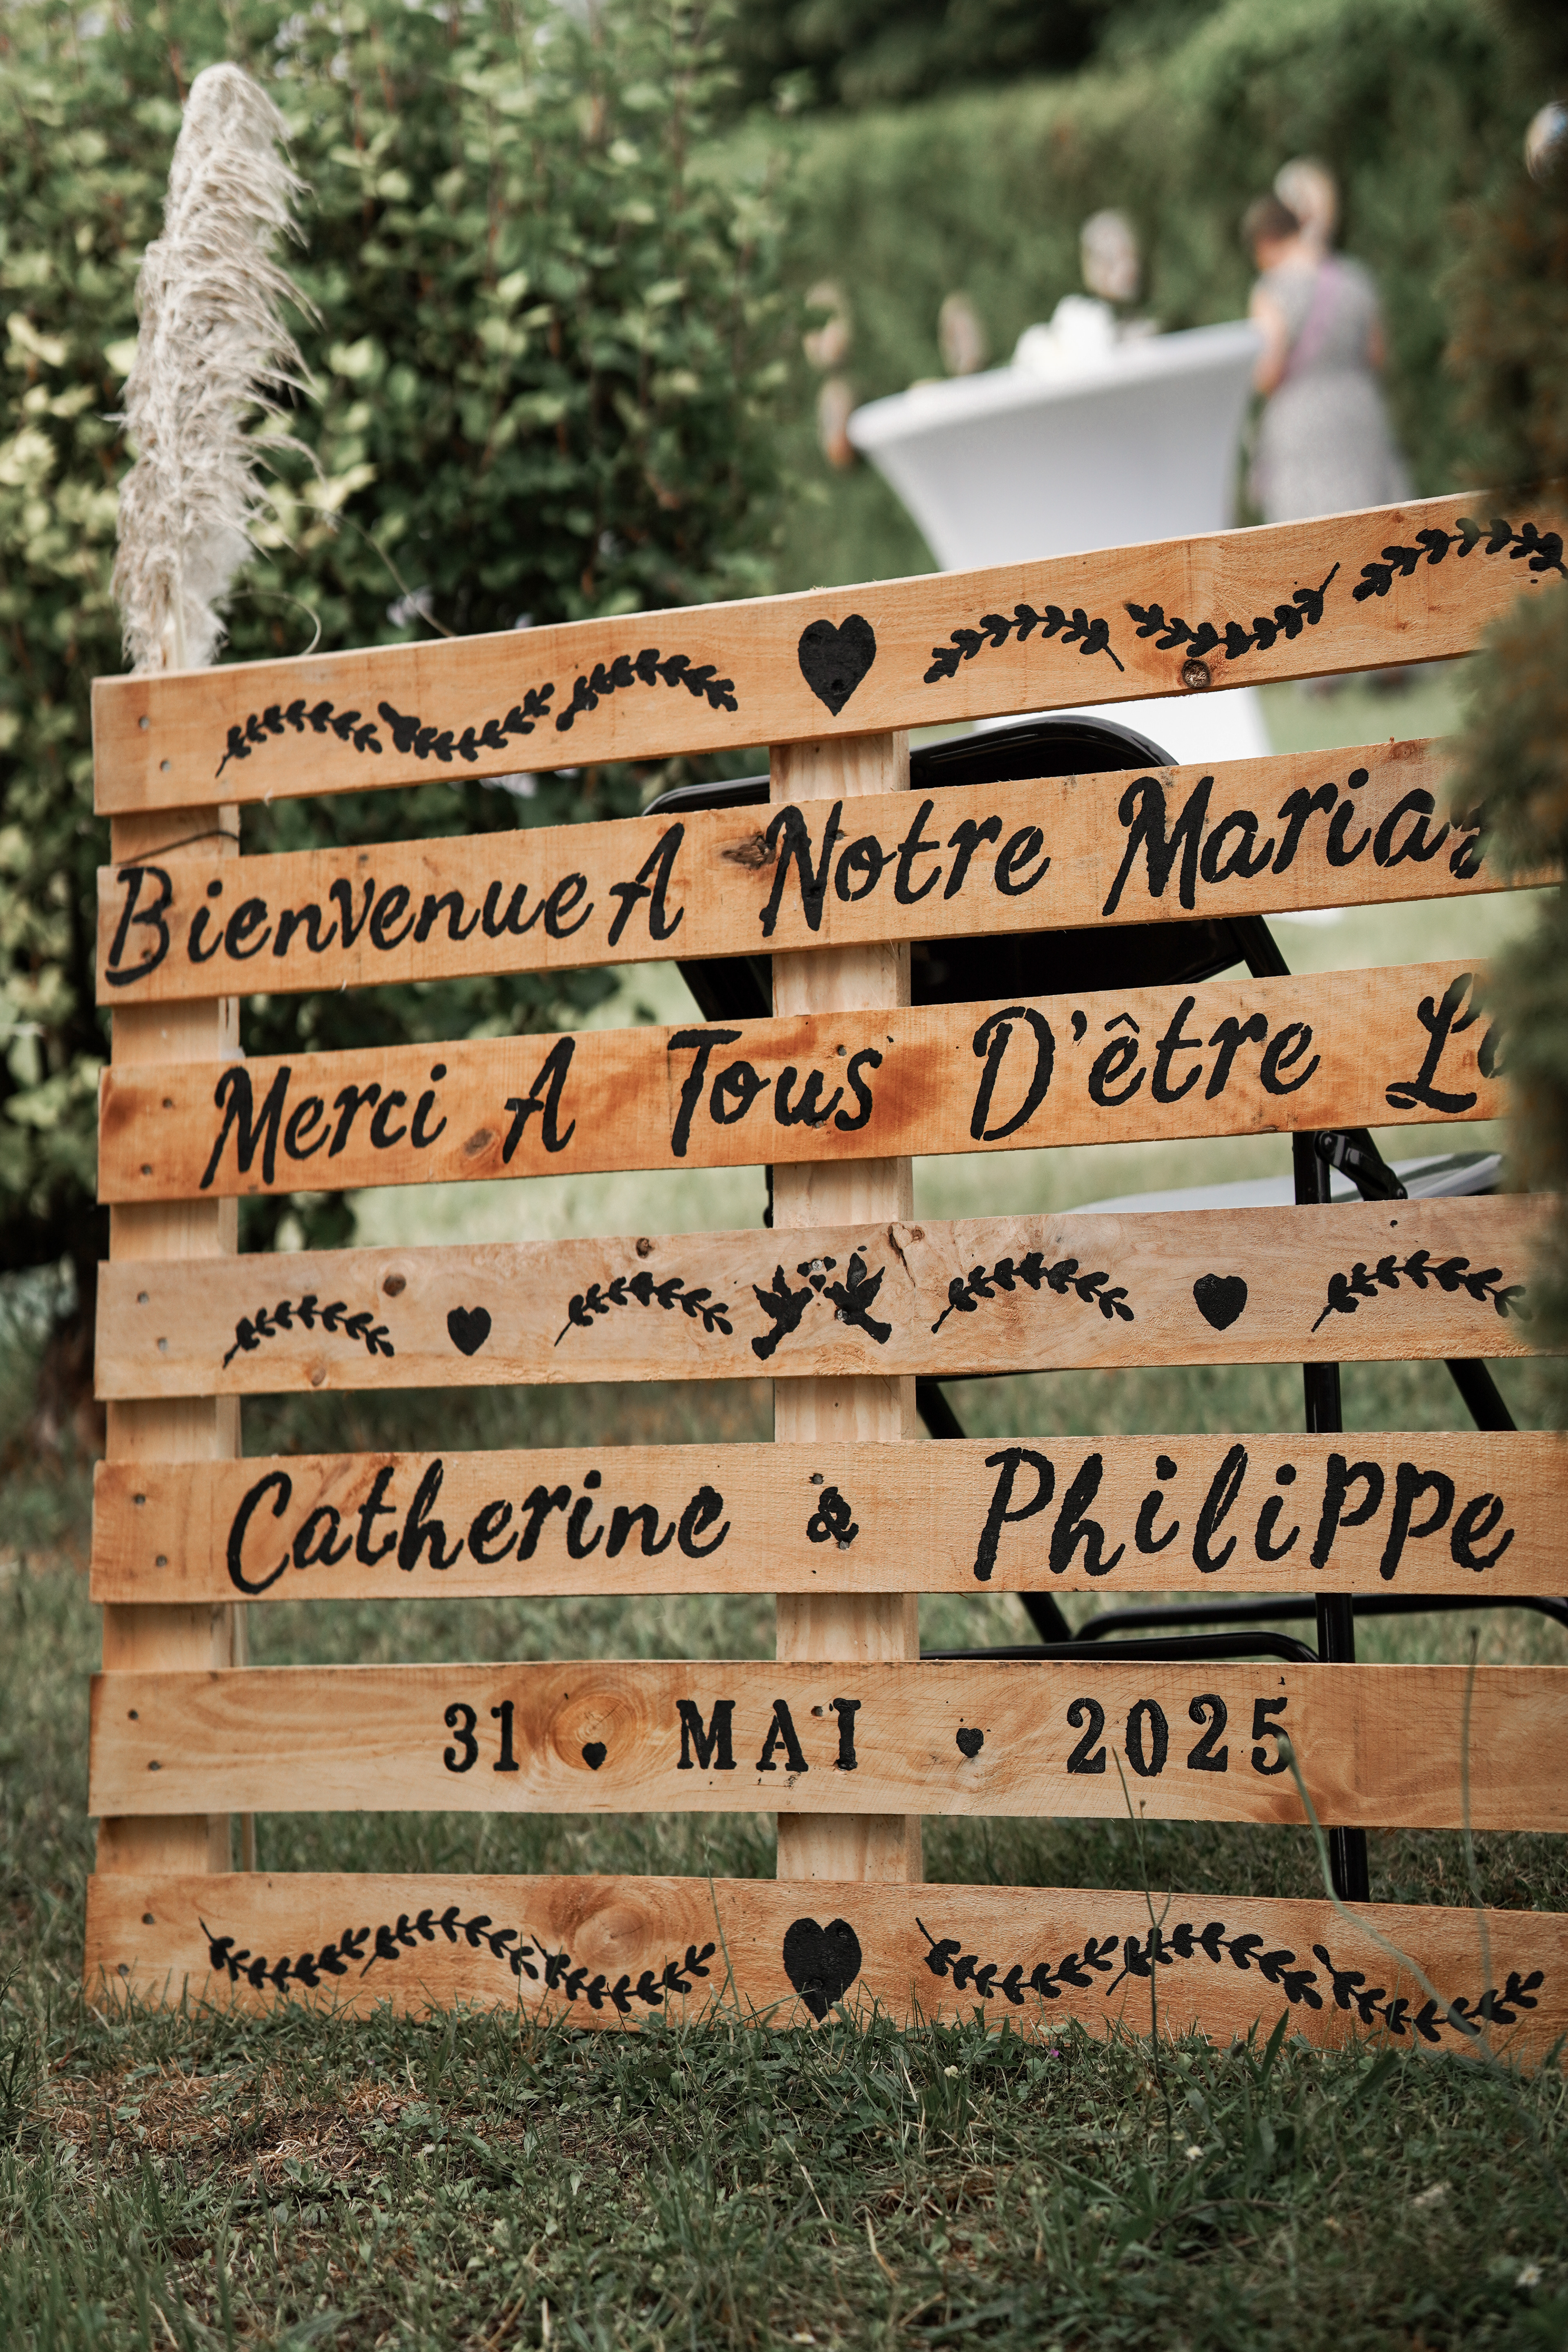 Bienvenue A Notre Mariag
Merci A Tous D'être La
Catherine & Philippe
31 MAI 2025